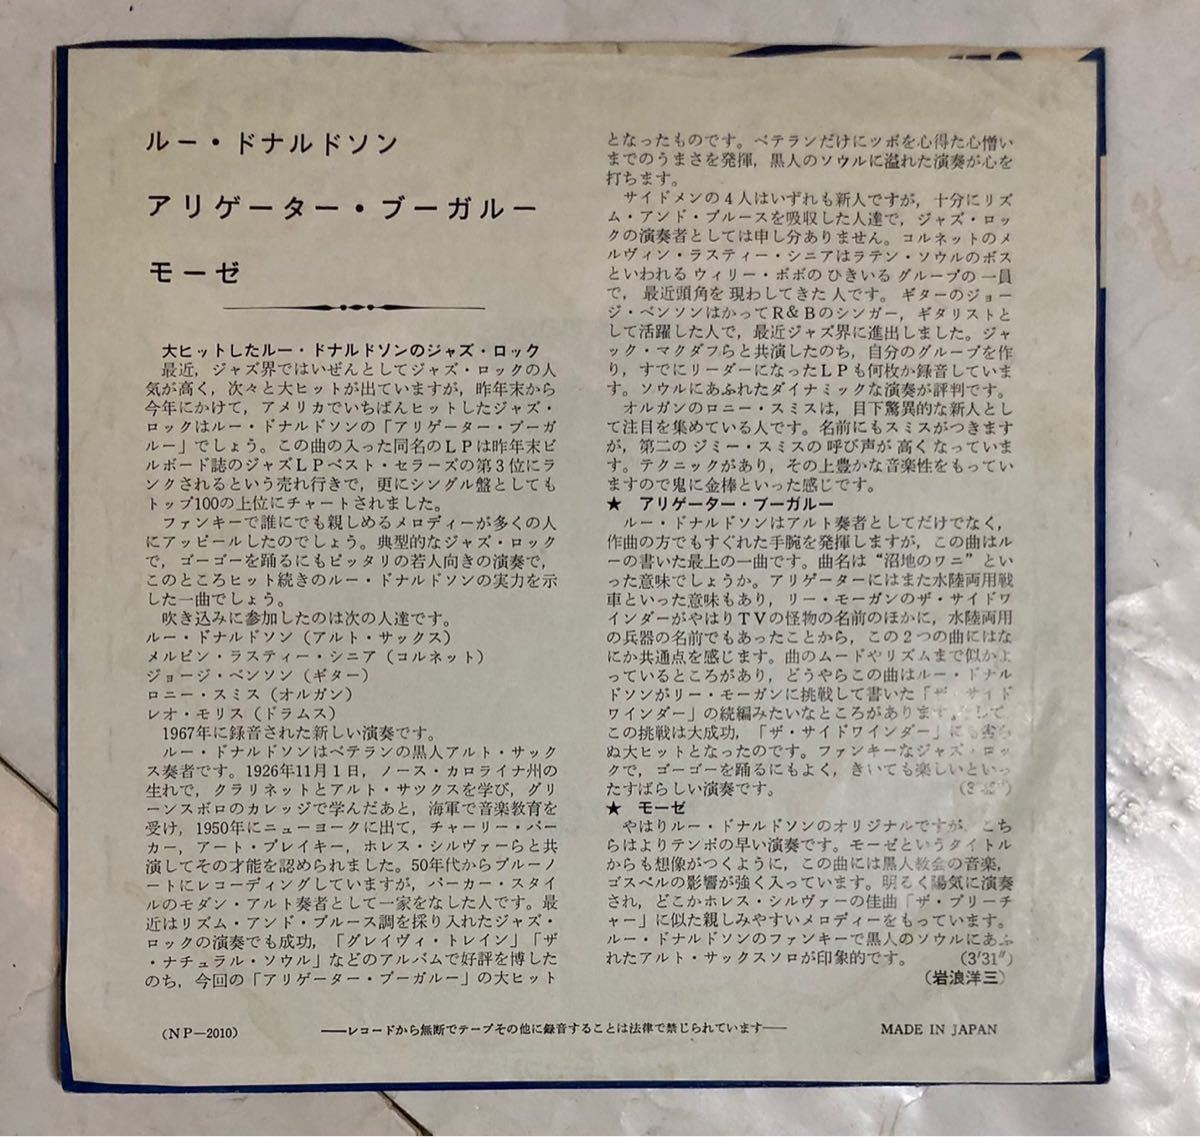 ルー・ドナルドソン
アリゲーター・ブーガルー
モーゼ
大ヒットしたルー・ドナルドソンのジャズ・ロック
最近，ジャズ界ではいぜんとしてジャズ・ロックの人
気が高く，次々と大ヒットが出ていますが，昨年末から
今年にかけて，アメリカでいちばんヒットしたジャズ・
ロックはルー・ドナルドソンの「アリゲーター・ブーガ
ルー」でしょう。この曲の入った同名のＬＰは昨年末ビ
ルボード誌のジャズＬＰベスト・セラーズの第３位にラ
ンクされるという売れ行きで，更にシングル盤としても
トップ100の上位にチャートされました。
ファンキーで誰にでも親しめるメロディーが多くの人
にアッピールしたのでしょう。典型的なジャズ・ロック
で，ゴーゴーを踊るにもピッタリの若人向きの演奏で，
このところヒット続きのルー・ドナルドソンの実力を示
した一曲でしょう。
吹き込みに参加したのは次の人達です。
ルー・ドナルドソン（アルト・サックス）
メルビン・ラスティー・シニア（コルネット）
ジョージ・ベンソン（ギター）
ロニー・スミス（オルガン）
レオ・モリス（ドラムス）
1967年に録音された新しい演奏です。
ルー・ドナルドソンはベテランの黒人アルト・サック
ス奏者です。1926年11月１日，ノース・カロライナ州の
生れで，クラリネットとアルト・サツクスを学び，グリ
ーンスボロのカレッジで学んだあと，海軍で音楽教育を
受け，1950年にニューヨークに出て，チャーリー・パー
カー，アート・ブレイキー，ホレス・シルヴァーらと共
演してその才能を認められました。50年代からブルーノ
ートにレコーディングしていますが，パーカー・スタイ
ルのモダン・アルト奏者として一家をなした人です。最
近はリズム・アンド・ブルース調を採り入れたジャズ・
ロックの演奏でも成功，「グレイヴィ・トレイン」「ザ
・ナチュラル・ソウル」などのアルバムで好評を博した
のち，今回の「アリゲーター・ブーガルー」の大ヒット
となったものです。ベテランだけにツボを心得た心憎い
までのうまさを発揮，黒人のソウルに溢れた演奏が心を
打ちます。
サイドメンの４人はいずれも新人ですが，十分にリズ
ム・アンド・ブルースを吸収した人達で，ジャズ・ロッ
クの演奏者としては申し分ありません。コルネットのメ
ルヴィン・ラスティー・シニアはラテン・ソウルのボス
といわれるウィリー・ボボのひきいるグループの一員
で，最近頭角を現わしてきた人です。ギターのジョー
ジ・ベンソンはかってＲ＆Ｂのシンガー，ギタリストと
して活躍した人で，最近ジャズ界に進出しました。ジャ
ック・マクダフらと共演したのち，自分のグループを作
り，すでにリーダーになったＬＰも何枚か録音していま
す。ソウルにあふれたダイナミックな演奏が評判です。
オルガンのロニー・スミスは，目下驚異的な新人とし
て注目を集めている人です。名前にもスミスがつきます
が，第二のジミー・スミスの呼び声が高くなっていま
す。テクニックがあり，その上豊かな音楽性をもってい
ますので鬼に金棒といった感じです。
★ アリゲーター・ブーガルー
ルー・ドナルドソンはアルト奏者としてだけでなく，
作曲の方でもすぐれた手腕を発揮しますが，この曲はル
ーの書いた最上の一曲です。曲名は“沼地のワニ”とい
った意味でしょうか。アリゲーターにはまた水陸両用戦
車といった意味もあり，リー・モーガンのザ・サイドワ
インダーがやはりＴＶの怪物の名前のほかに，水陸両用
の兵器の名前でもあったことから，この２つの曲にはな
にか共通点を感じます。曲のムードやリズムまで似かよ
っているところがあり，どうやらこの曲はルー・ドナル
ドソンがリー・モーガンに挑戦して書いた「ザ・サイド
ワインダー」の続編みたいなところがあります。そして
この挑戦は大成功，「ザ・サイドワインダー」にも劣ら
ぬ大ヒットとなったのです。ファンキーなジャズ・ロッ
クで，ゴーゴーを踊るにもよく，きいても楽しいといっ
たすばらしい演奏です。
★ モーゼ
やはりルー・ドナルドソンのオリジナルですが，こち
らはよりテンポの早い演奏です。モーゼというタイトル
からも想像がつくように，この曲には黒人教会の音楽，
ゴスペルの影響が強く入っています。明るく陽気に演奏
され，どこかホレス・シルヴァーの佳曲「ザ・プリーチ
ャー」に似た親しみやすいメロディーをもっています。
ルー・ドナルドソンのファンキーで黒人のソウルにあふ
れたアルト・サックスソロが印象的です。 （3′31″）
（岩浪洋三）
（ＮＰ—2010）
——レコードから無断でテープその他に録音することは法律で禁じられています——
MADE IN JAPAN